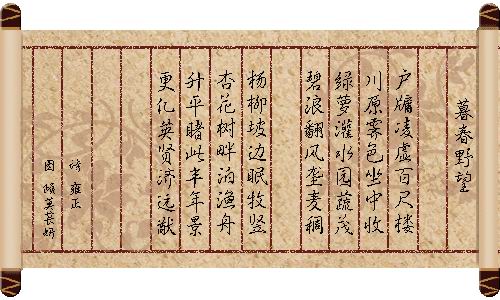 暮春野望
户牖凌虚百尺楼
川原霁色坐中收
绿萝灌水园蔬茂
碧浪翻风垄麦稠
杨柳坡边眠牧竖
杏花树畔泊渔舟
升平睹此丰年景
更化英贤济远猷
诗 雍正
图 倾